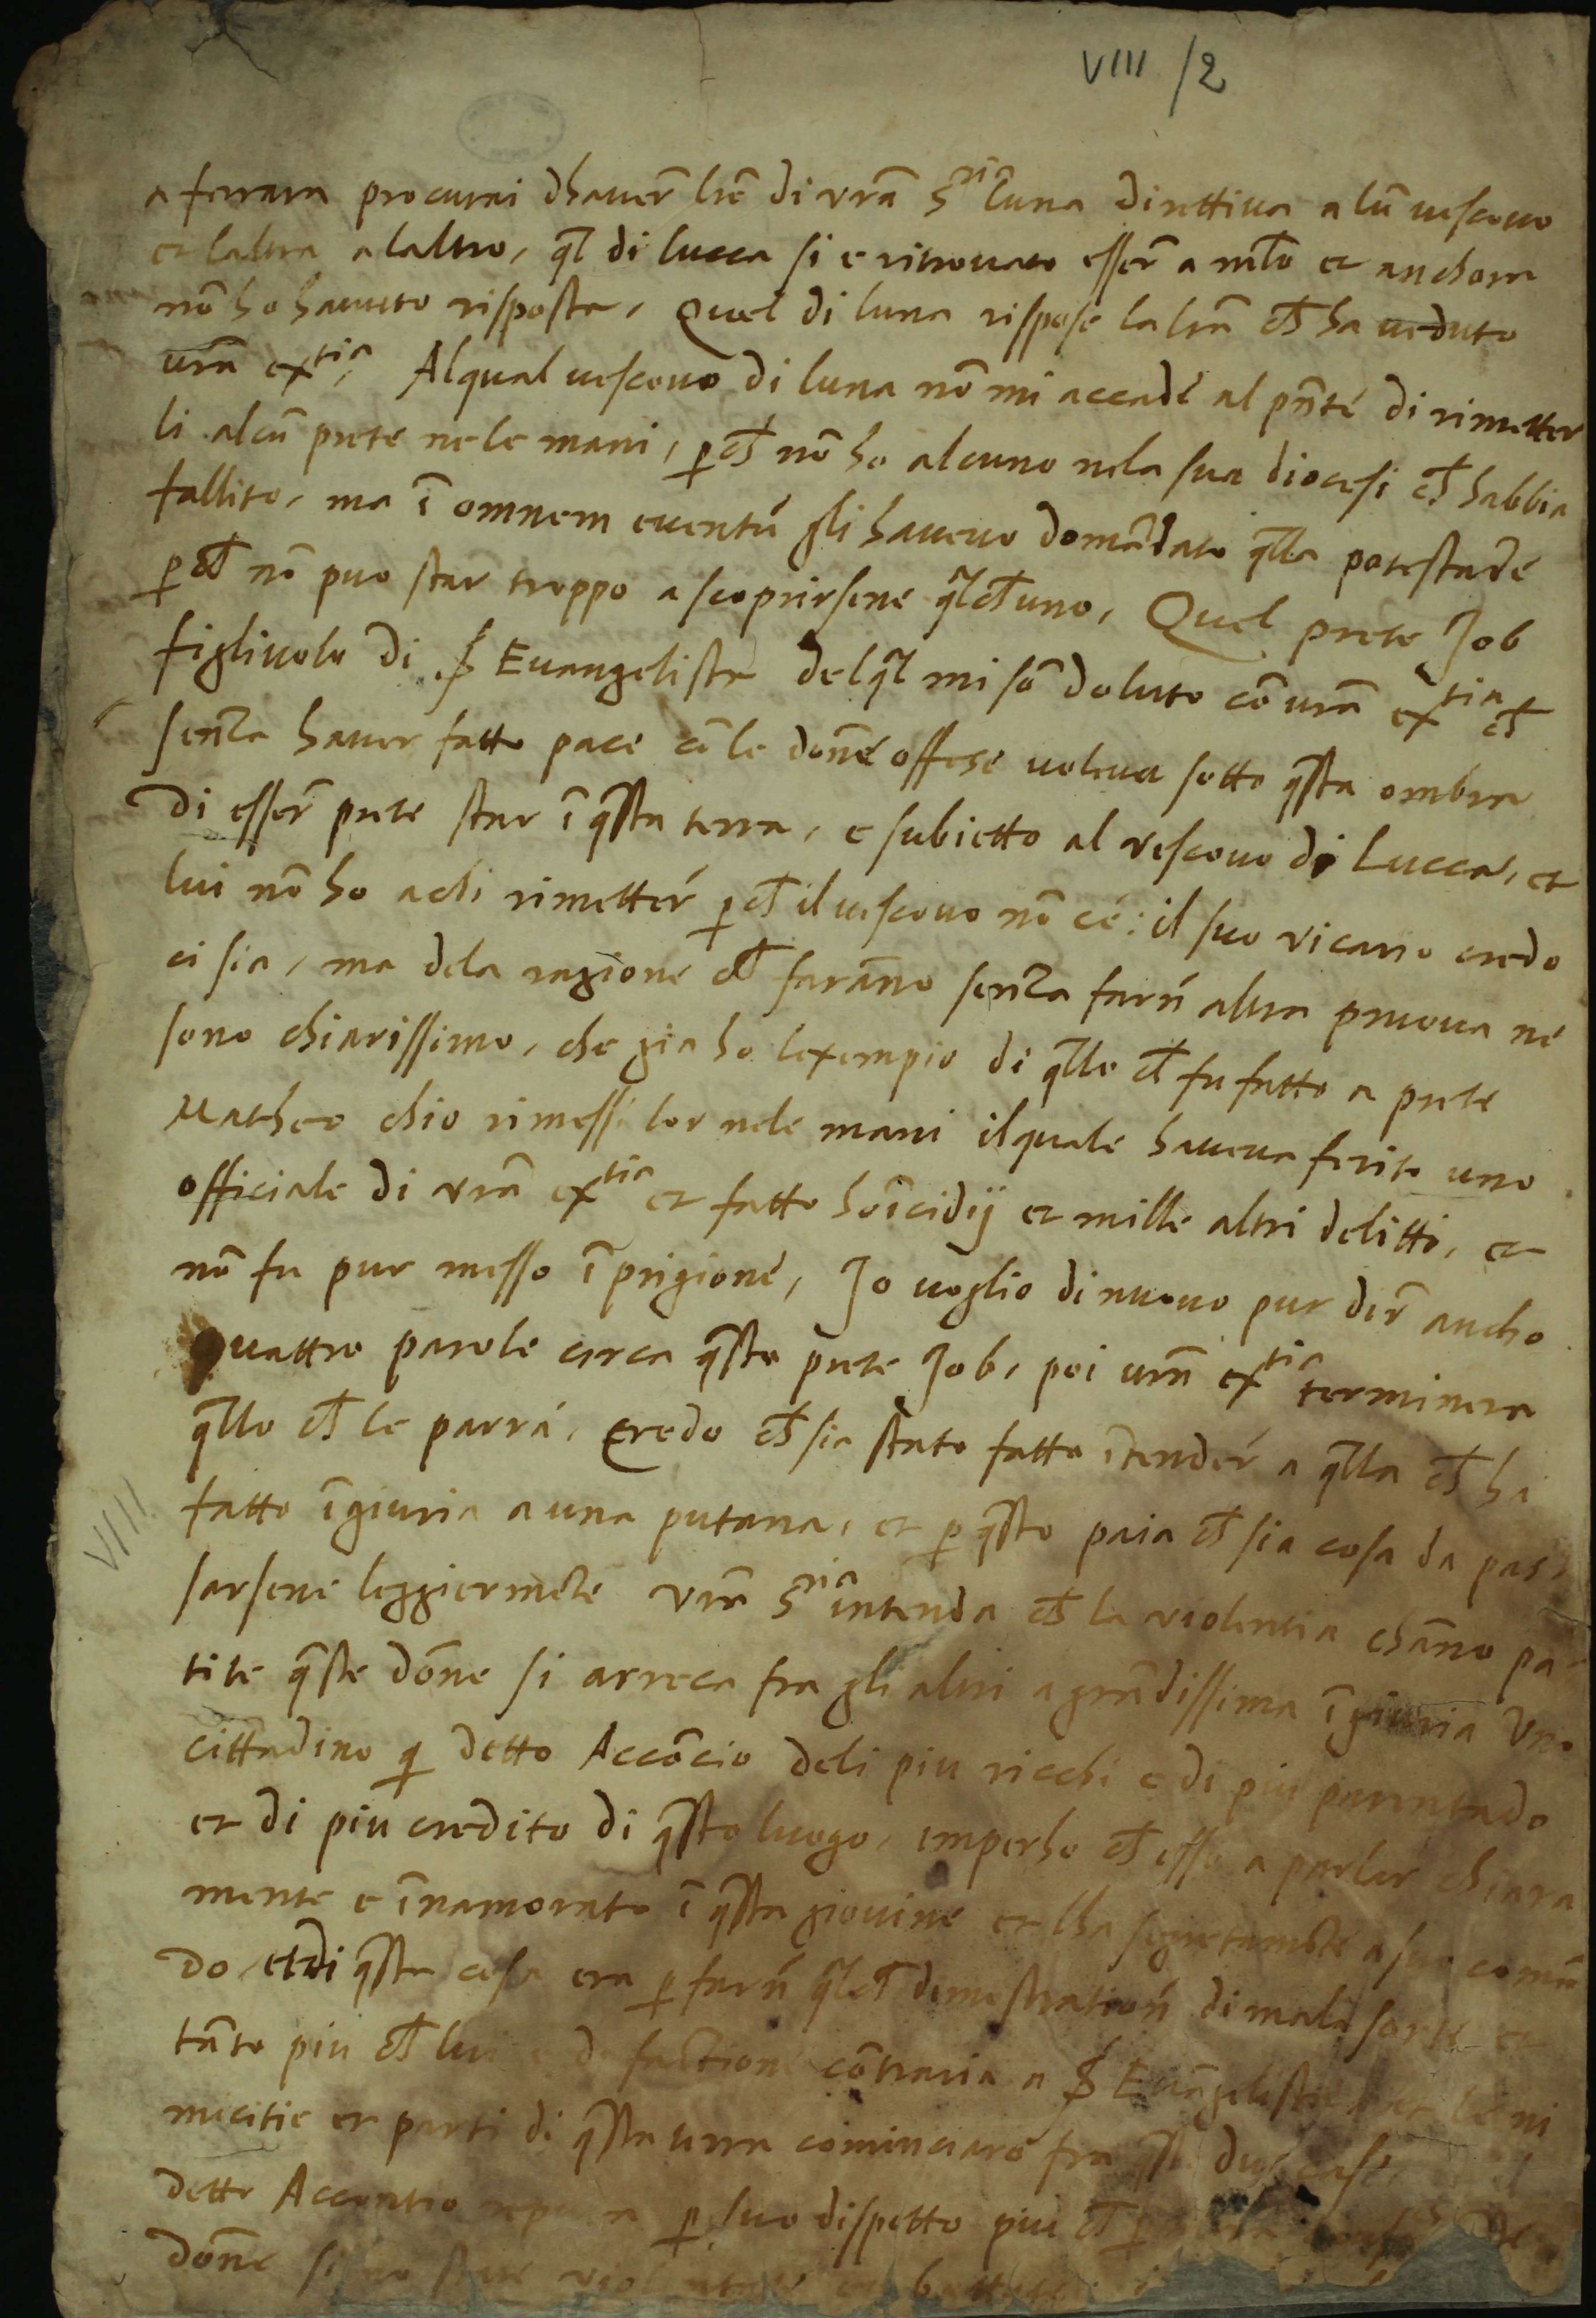 VIII /2
a ferrara procurai dhauer̄ lr̄e di vr̄a S.ria luna direttiua a lū uescouo
et laltra a laltro, ql̄ di lucca si e ritrouato esser̄ a mlō et anchora
nō ho hauuto risposta, Quel di luna rispose la lrā ch̄ ha ueduto
urā extia, Alqual uescouo di luna nō mi accade al pn̄te di rimetter
li alcū prete nele mani, ꝑch̄ nō ho alcuno nela sua diocesi ch̄ habbia
fallito, ma ī omnem euentū gli haueuo domādato ql̄la potestade
ꝑch̄ nō puo star troppo a scoprirsene ql̄ch̄uno, Quel prete Job
figliuolo di S Euangelista delql̄ mi sō doluto cō urā extia ch̄
senza hauer fatto pace cō le donē offese voleua sotto qsta ombra
di esser̄ prete star ī qsta terra, e subietto al vescouo di Lucca, et
lui nō ho a chi rimetter̄ ꝑch̄ il uescouo nō cé: il suo vicario credo
ci sia, ma dela ragione ch̄ farāno senza farn̄ altra pruoua né
sono chiarissimo, che gia ho lexempio di ql̄lo ch̄ fu fatto a prete
Matheo chio rimessi lor nele mani ilquale haueua ferito uno
officiale di vrā extia et fatto hoīcidij et mille altri delitti, et
nō fu pur messo ī prigione, Jo uoglio di nuouo pur dir̄ ancho
quattro parole circa qsto prete Job, poi urā extia terminera
ql̄lo ch̄ le parrá, Credo ch̄ sia stato fatto ītender̄ a ql̄la ch̄ ha
fatto īgiuria a una putana, et ꝑ qsto paia ch̄ sia cosa da pas,
VIII
sarsene leggiermēte vrā S.ria intenda ch̄ la violentia chāno pa-
tite qste dōne si arreca fra gli altri a grādissima īgiuria Uno
cittadino q detto Accōcio deli piu ricchi e di piu parentado
et di piu credito di qsto luogo, imperho ch̄ esso a parlar chiara
mente e īnamorato ī qsta giouine et lha segretamēte a suo comā
do, et di qsta cosa era ꝑ farn̄ ql̄ch̄ demostration̄ di mala sorte et
tāto piu ch̄ lui e di factione cōtraria a S Euāgelista
micitie et parti di qsta terra cominciaro fra qste due case
detto Acconcio ꝑ suo dispetto piu ch̄
dōne